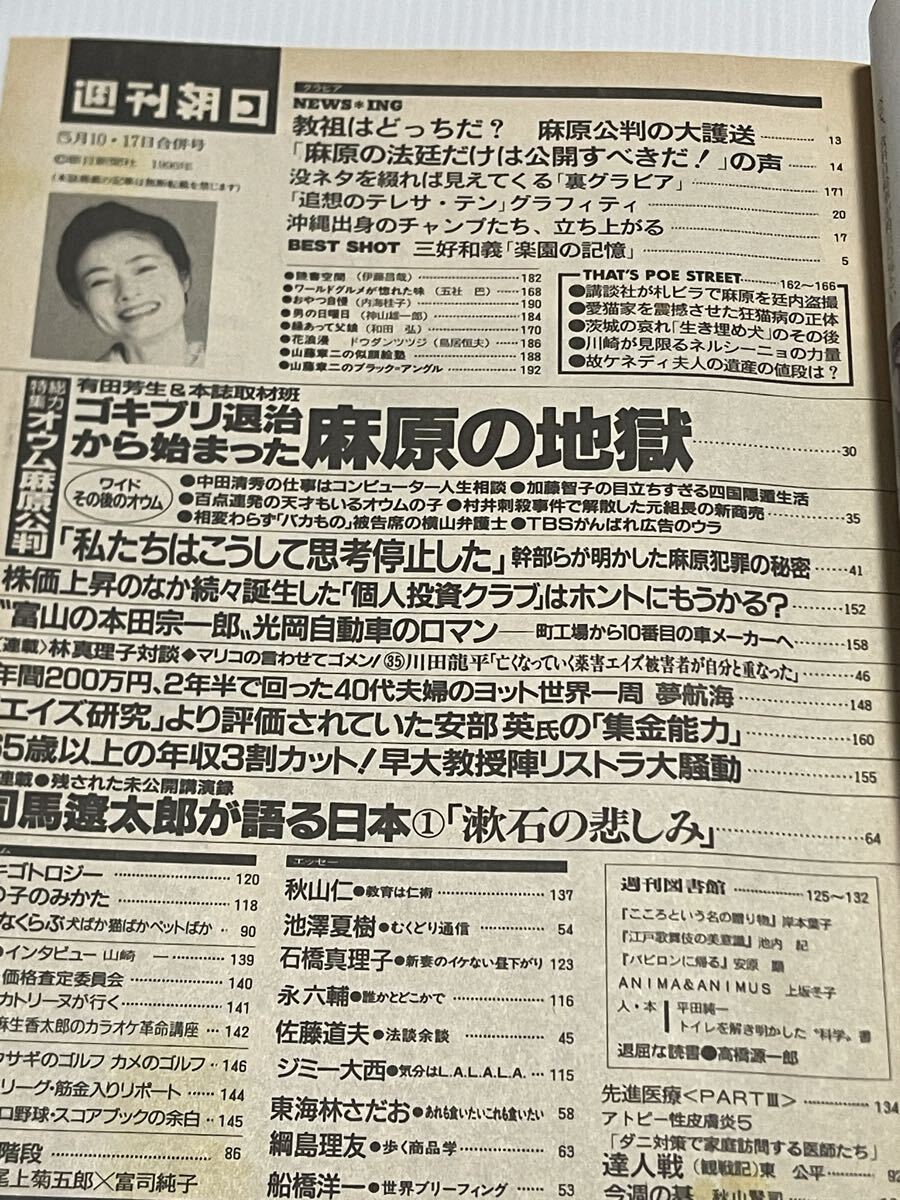 週刊朝日
5月10・17日合併号
©朝日新聞社 1996年
(本誌掲載の記事は無断転載を禁じます)
グラビア
NEWS*ING
教祖はどっちだ? 麻原公判の大護送 13
「麻原の法廷だけは公開すべきだ!」の声 14
没ネタを綴れば見えてくる「裏グラビア」 171
「追想のテレサ・テン」グラフィティ 20
沖縄出身のチャンプたち、立ち上がる 17
BEST SHOT 三好和義「楽園の記憶」 5
●読書空間 (伊藤昌哉) 182
●ワールドグルメが惚れた味 (五社 巴) 168
●おやつ自慢 (内海桂子) 190
●男の日曜日 (神山雄一郎) 184
●縁あって父娘 (和田 弘) 170
●花浪漫 ドウダンツツジ (鳥居恒夫) 186
●山藤章二の似顔絵塾 188
●山藤章二のブラック=アングル 192
THAT'S POE STREET 162〜166
●講談社が札ビラで麻原を廷内盗撮
●愛猫家を震撼させた狂猫病の正体
●茨城の哀れ「生き埋め犬」のその後
●川崎が見限るネルシーニョの力量
●故ケネディ夫人の遺産の値段は?
総力特集 オウム麻原公判
有田芳生&本誌取材班
ゴキブリ退治から始まった麻原の地獄 30
ワイド その後のオウム
●中田清秀の仕事はコンピューター人生相談 ●加藤智子の目立ちすぎる四国隠遁生活
●百点連発の天才もいるオウムの子 ●村井刺殺事件で解散した元組長の新商売 35
●相変わらず「バカもの」被告席の横山弁護士 ●TBSがんばれ広告のウラ
「私たちはこうして思考停止した」幹部らが明かした麻原犯罪の秘密 41
株価上昇のなか続々誕生した「個人投資クラブ」はホントにもうかる? 152
〝富山の本田宗一郎〟光岡自動車のロマン ─町工場から10番目の車メーカーへ 158
〈連載〉林真理子対談◆マリコの言わせてゴメン!㉟川田龍平「亡くなっていく薬害エイズ被害者が自分と重なった」 46
年間200万円、2年半で回った40代夫婦のヨット世界一周 夢航海 148
「エイズ研究」より評価されていた安部英氏の「集金能力」 160
65歳以上の年収3割カット!早大教授陣リストラ大騒動 155
連載●残された未公開講演録
司馬遼太郎が語る日本①「漱石の悲しみ」 64
ム
ギゴトロジー 120
の子のみかた 118
なくらぶ 犬ばか猫ばかペットばか 90
●インタビュー 山崎 一 139
価格査定委員会 140
カトリーヌが行く 141
麻生香太郎のカラオケ革命講座 142
ウサギのゴルフ カメのゴルフ 146
リーグ・筋金入りリポート 144
ロ野球・スコアブックの余白 145
階段 86
尾上菊五郎×富司純子
エッセー
秋山仁●教育は仁術 137
池澤夏樹●むくどり通信 54
石橋真理子●新妻のイケない昼下がり 123
永六輔●誰かとどこかで 116
佐藤道夫●法談余談 45
ジミー大西●気分はL.A.L.A.L.A. 115
東海林さだお●あれも食いたいこれも食いたい 58
綱島理友●歩く商品学 63
船橋洋一●世界ブリーフィング 53
週刊図書館 125〜132
『こころという名の贈り物』岸本葉子
『江戸歌舞伎の美意識』池内 紀
『バビロンに帰る』安原 顯
ANIMA&ANIMUS 上坂冬子
人・本 平田純一
トイレを解き明かした〝科学〟書
退屈な読書●高橋源一郎
先進医療<PARTⅢ> 134
アトピー性皮膚炎5
「ダニ対策で家庭訪問する医師たち」
達人戦 (観戦記)東 公平 92
今週の碁 秋山賢司